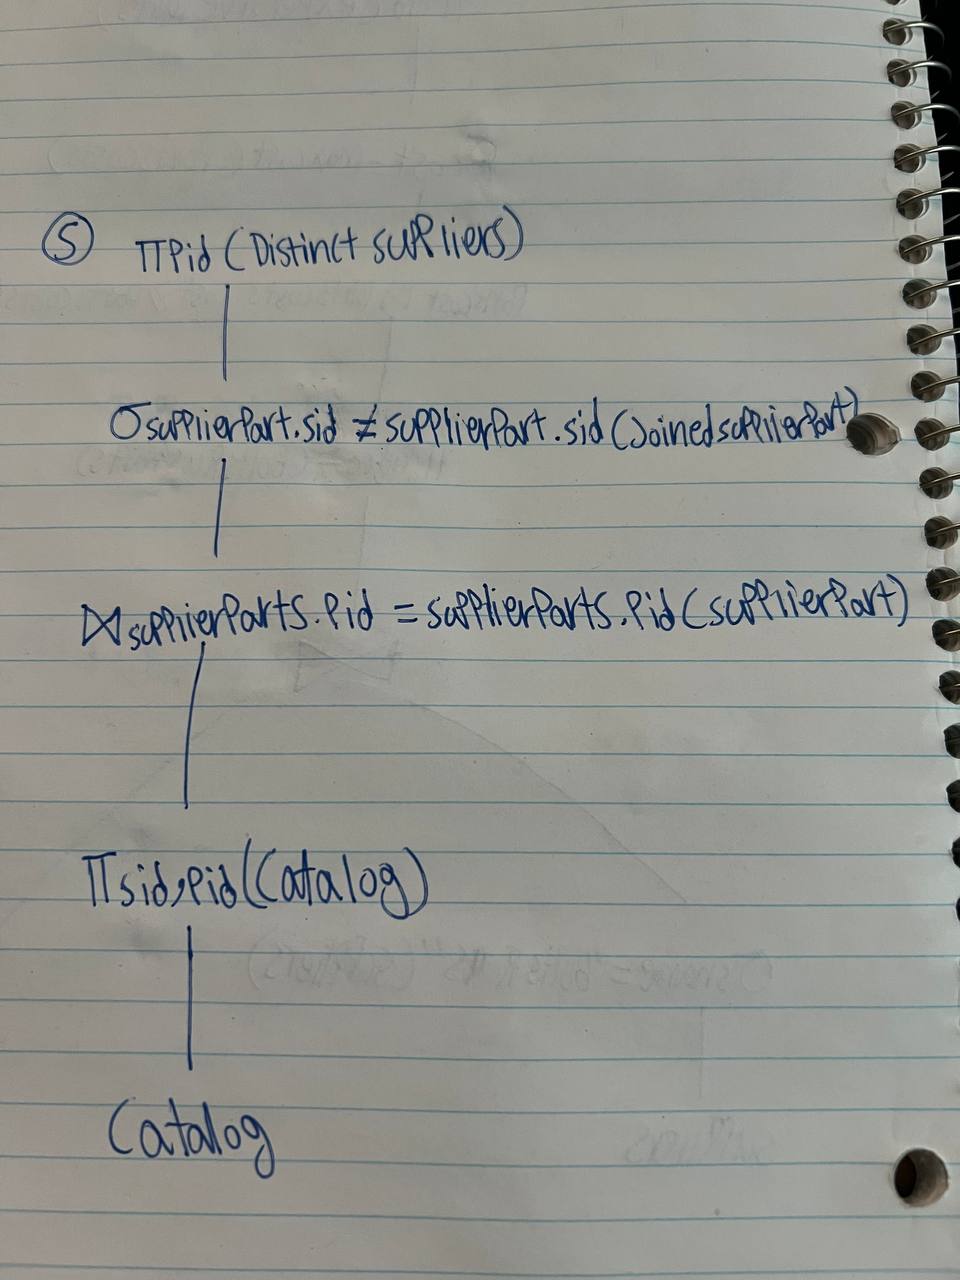 ⑤ πPid (Distinct suppliers)
σsupplierPart.sid ≠ supplierPart.sid (JoinedsupplierPart)
⋈supplierParts.Pid = supplierParts.Pid (supplierPart)
πsid,Pid (Catalog)
Catalog